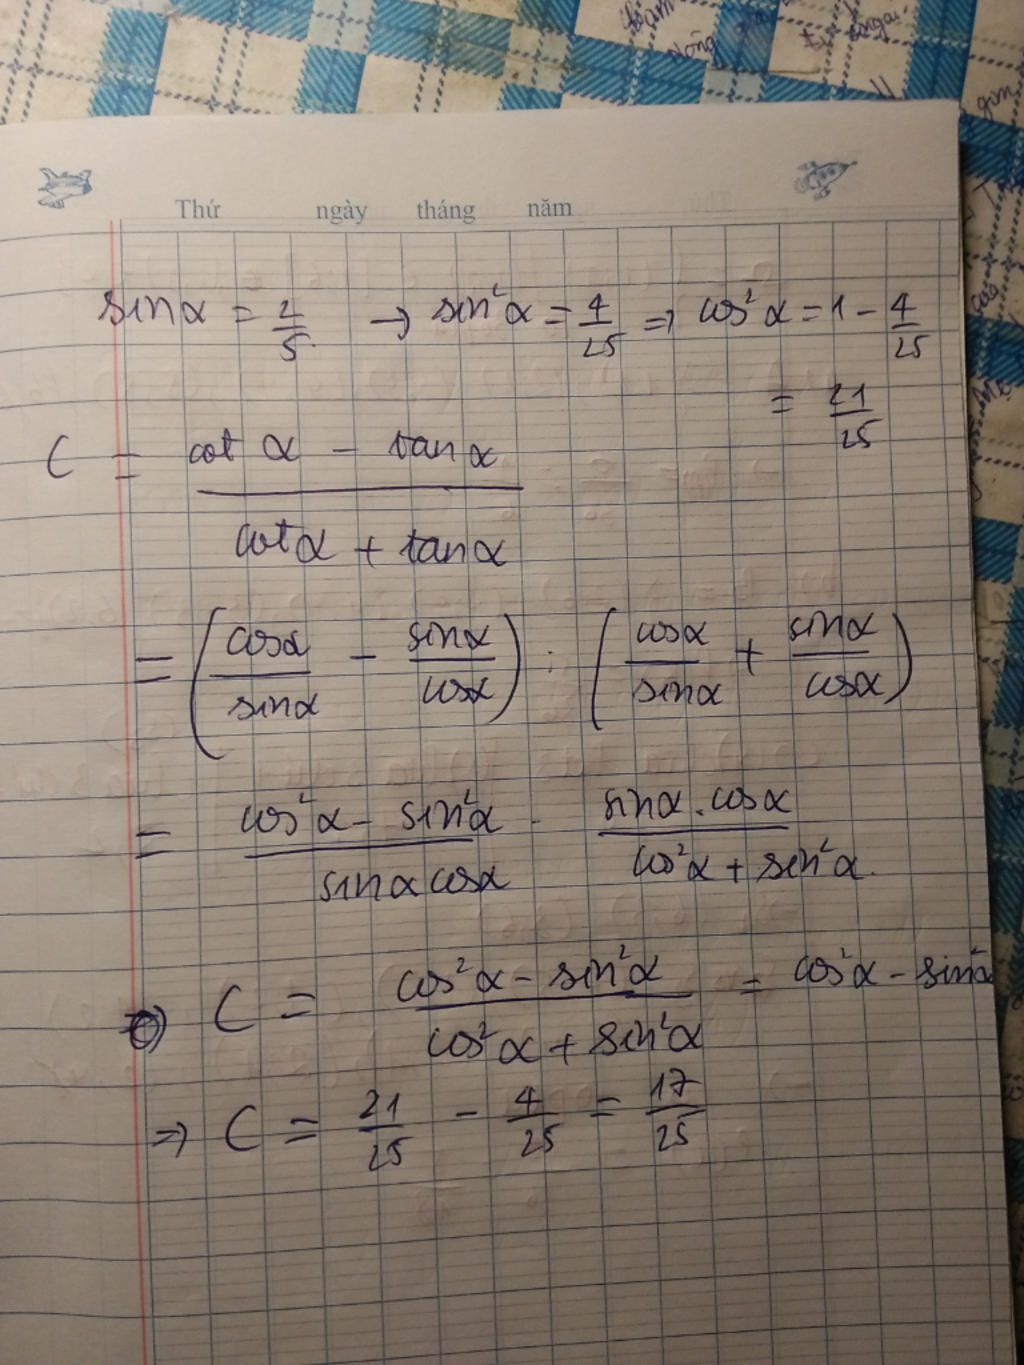 Thứ ngày tháng năm
sinα = 2/5 → sin²α = 4/25 => cos²α = 1 - 4/25
= 21/25
C = (cot α - tan α)/(cotα + tanα)
= (cosα/sinα - sinα/cosα) : (cosα/sinα + sinα/cosα)
= (cos²α - sin²α)/(sinα cosα) . (sinα.cosα)/(cos²α + sin²α)
=> C = (cos²α - sin²α)/(cos²α + sin²α) = cos²α - sin²α
=> C = 21/25 - 4/25 = 17/25